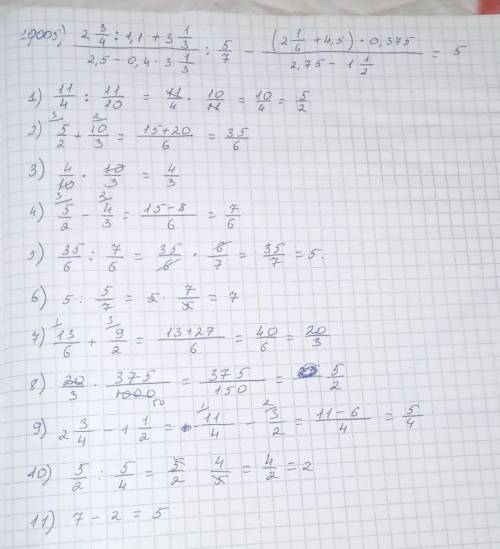 19005) (2 3/4 : 1,1 + 3 1/3) / (2,5 - 0,4 · 3 1/3) : 5/7 - ((2 1/6 + 4,5) · 0,375) / (2,75 - 1 1/2) = 5
1) 11/4 : 11/10 = 11/4 · 10/11 = 10/4 = 5/2
2) 5/2 + 10/3 = (15+20)/6 = 35/6
3) 4/10 · 10/3 = 4/3
4) 5/2 - 4/3 = (15-8)/6 = 7/6
5) 35/6 : 7/6 = 35/6 · 6/7 = 35/7 = 5.
6) 5 : 5/7 = 5 · 7/5 = 7
7) 13/6 + 9/2 = (13+27)/6 = 40/6 = 20/3
8) 20/3 · 375/1000 = 375/150 = 5/2
9) 2 3/4 - 1 1/2 = 11/4 - 3/2 = (11-6)/4 = 5/4
10) 5/2 : 5/4 = 5/2 · 4/5 = 4/2 = 2
11) 7 - 2 = 5